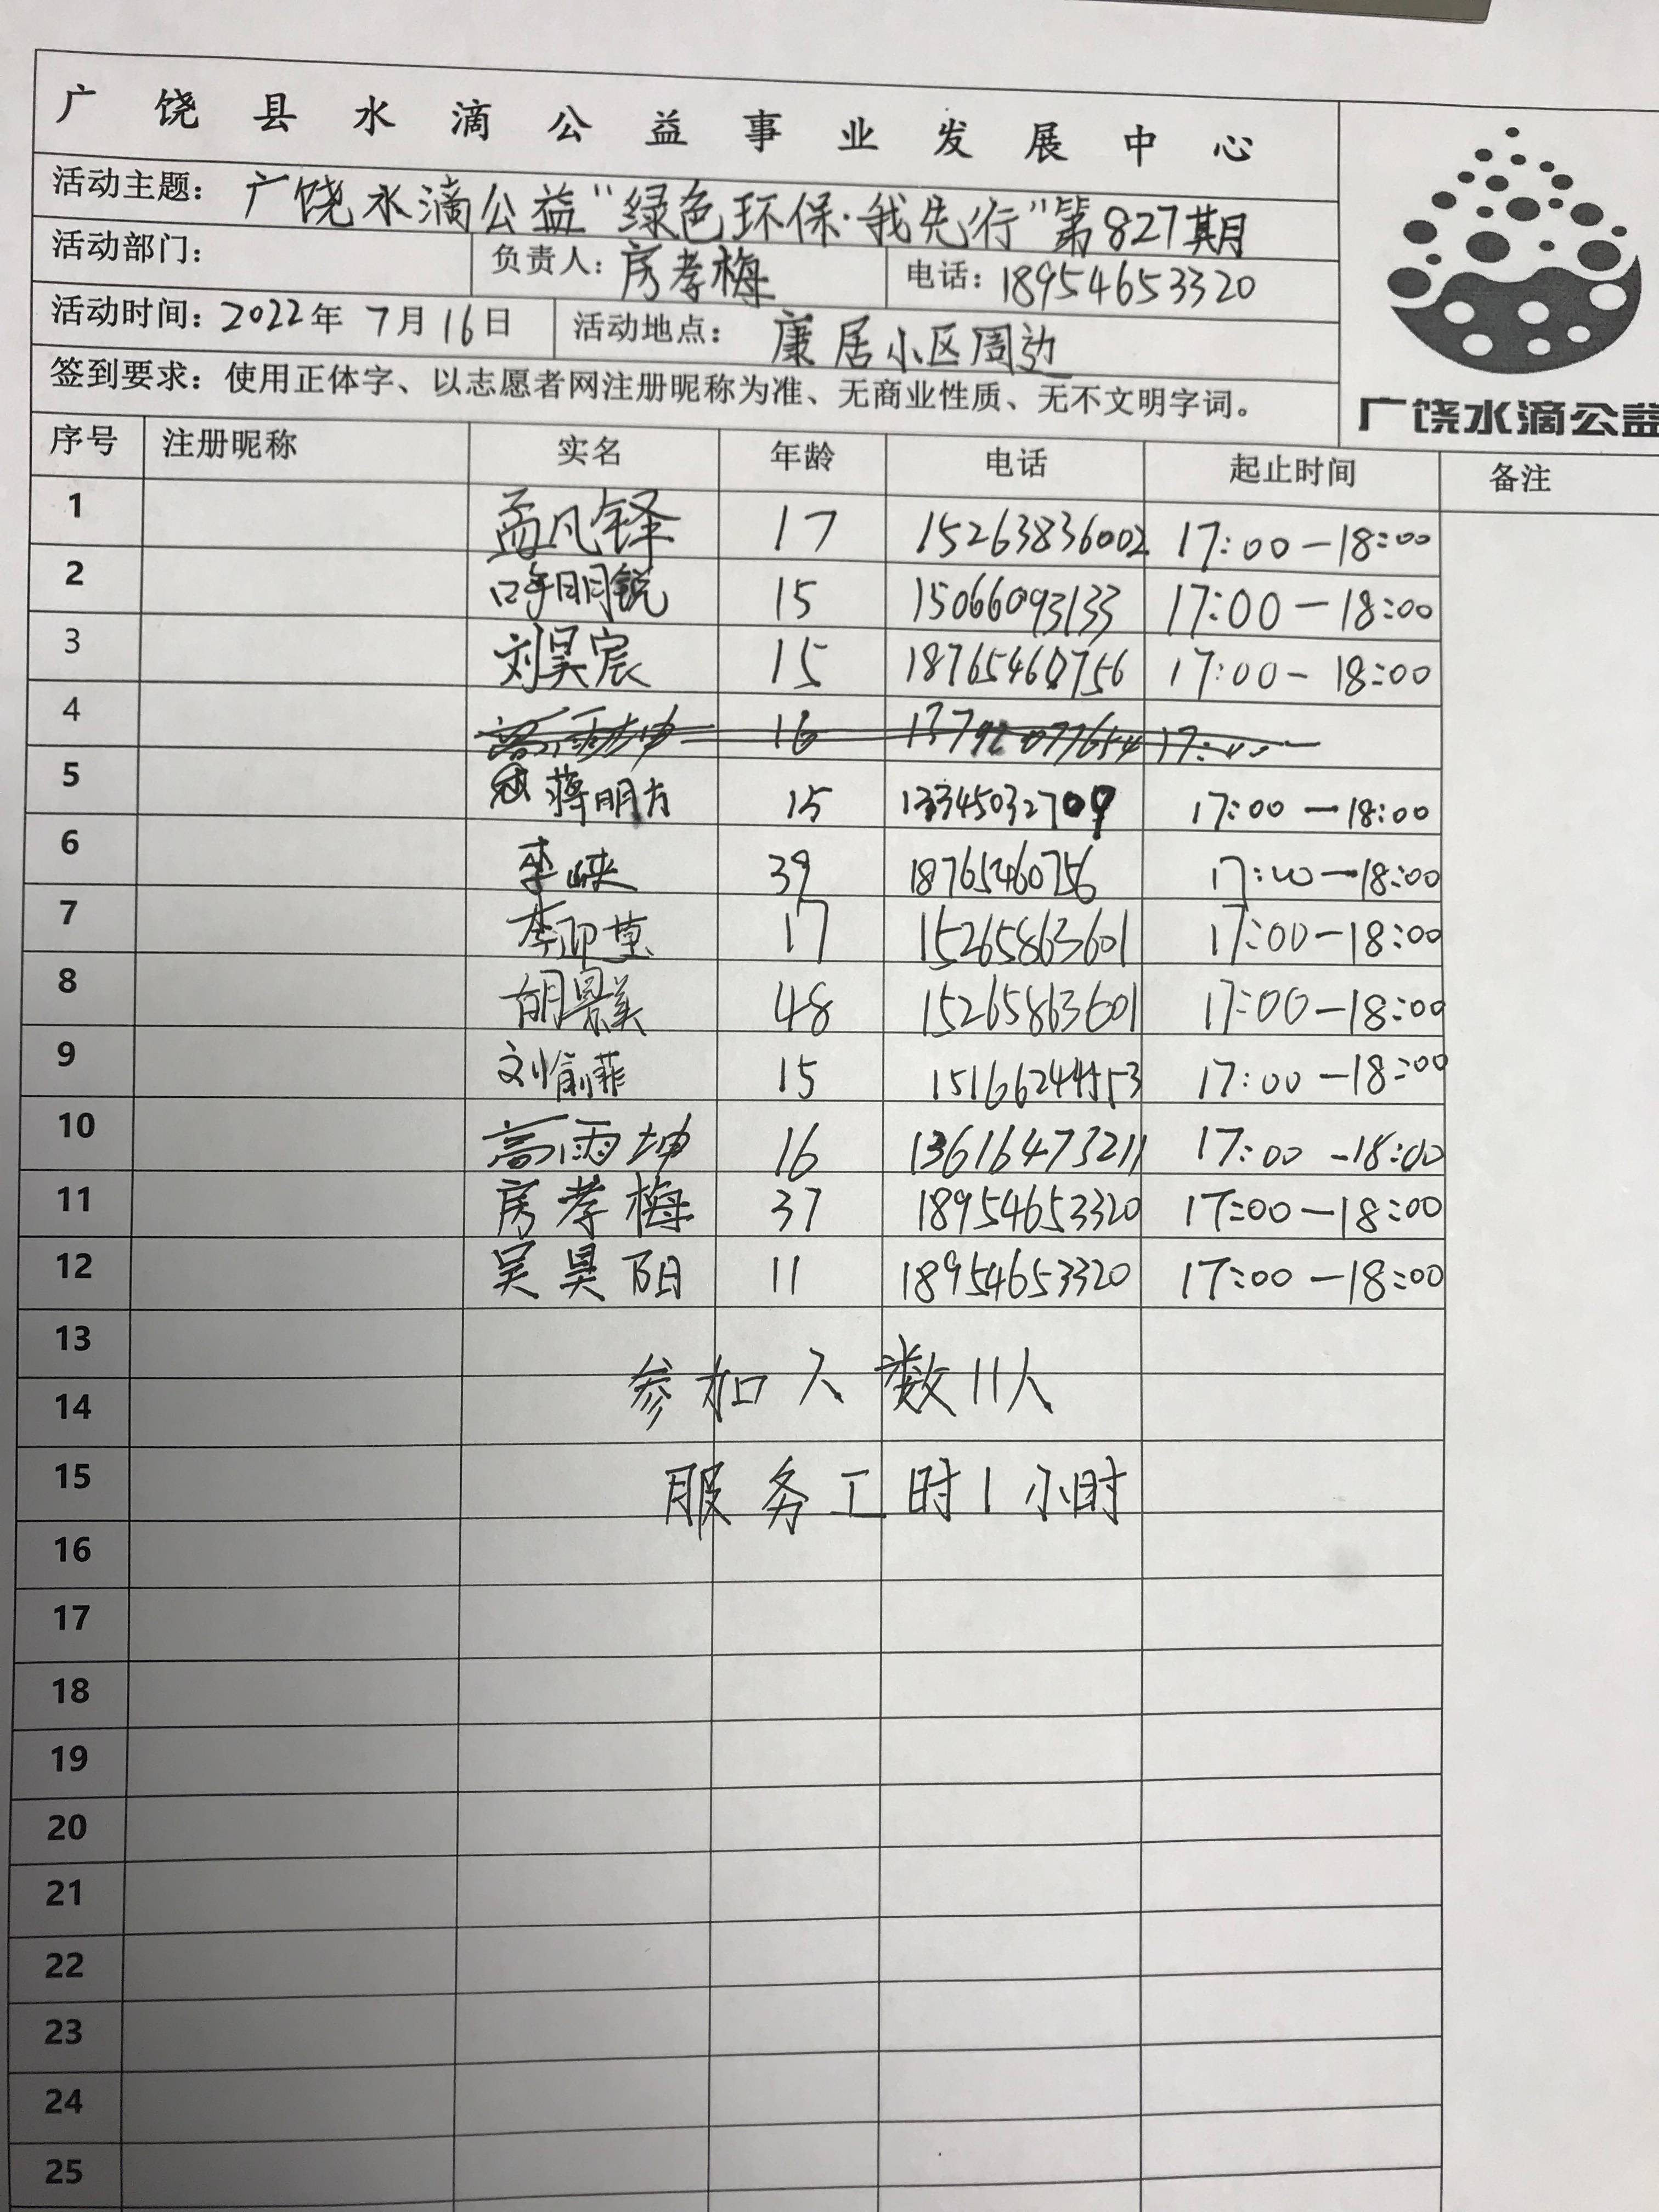 广饶县水滴公益事业发展中心
活动主题：广饶水滴公益“绿色环保·我先行”第827期
活动部门： 负责人：房孝梅 电话：18954653320
活动时间：2022年7月16日 活动地点：康居小区周边
签到要求：使用正体字、以志愿者网注册昵称为准、无商业性质、无不文明字词。
广饶水滴公益
序号 注册昵称 实名 年龄 电话 起止时间 备注
1 孟凡铎 17 15263836002 17:00-18:00
2 明锐 15 15066093133 17:00-18:00
3 刘昊宸 15 18765460756 17:00-18:00
4 高雨坤 16 17:00-
5 蒋明方 15 13345032709 17:00-18:00
6 李峡 39 18765460756 17:00-18:00
7 李 17 15265863601 17:00-18:00
8 胡景美 48 15265863601 17:00-18:00
9 刘愉菲 15 17:00-18:00
10 高雨坤 16 13616473211 17:00-18:00
11 房孝梅 37 18954653320 17:00-18:00
12 吴昊阳 11 18954653320 17:00-18:00
13
参加人数11人
14
15 服务工时1小时
16
17
18
19
20
21
22
23
24
25